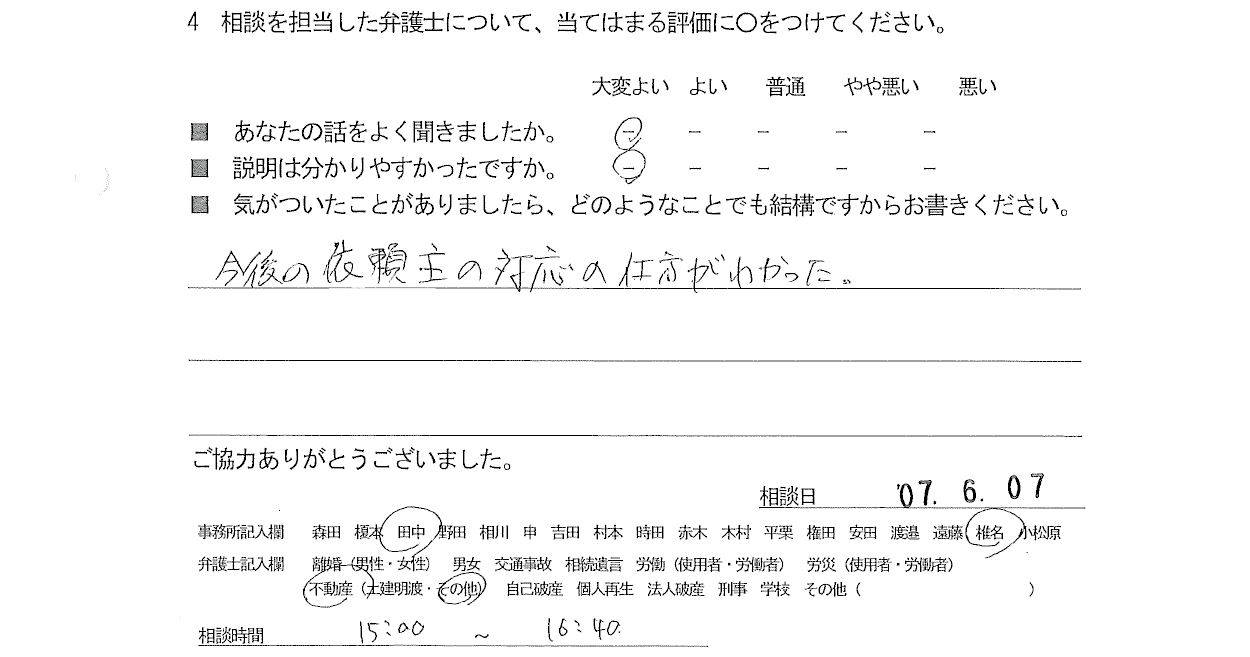 4 相談を担当した弁護士について、当てはまる評価に〇をつけてください。
大変よい よい 普通 やや悪い 悪い
■ あなたの話をよく聞きましたか。 － － － － －
■ 説明は分かりやすかったですか。 － － － － －
■ 気がついたことがありましたら、どのようなことでも結構ですからお書きください。
今後の依頼主の対応の仕方がわかった。
ご協力ありがとうございました。
相談日 '07. 6. 07
事務所記入欄 森田 榎本 田中 野田 相川 申 吉田 村本 時田 赤木 木村 平栗 権田 安田 渡邉 遠藤 椎名 小松原
弁護士記入欄 離婚（男性・女性） 男女 交通事故 相続遺言 労働（使用者・労働者） 労災（使用者・労働者）
不動産（土建明渡・その他） 自己破産 個人再生 法人破産 刑事 学校 その他（ ）
相談時間 15:00 ～ 16:40